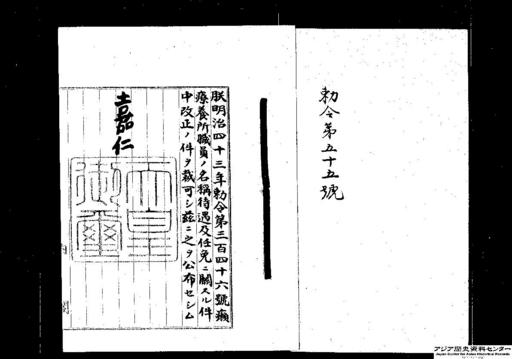 勅令第五十五號
朕明治四十三年勅令第三百四十六號癩
療養所職員ノ名稱待遇及任免ニ關スル件
中改正ノ件ヲ裁可シ茲ニ之ヲ公布セシム
嘉仁
天皇
御璽
アジア歴史資料センター
Japan Center for Asian Historical Records